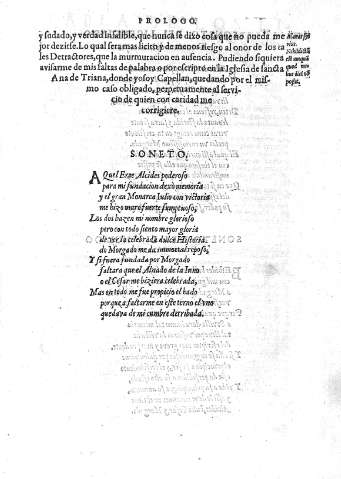 PROLOGO.
y sudado, y verdad infalible, que nunca se dixo cosa que no pueda me
jor dezirse. Lo qual sera mas licito y de menos riesgo al onor de los ta
les Detractores, que la murmuracion en ausencia. Pudiendo siquiera
avisarme de mis faltas de palabra o por escripto en la Iglesia de sancta
Ana de Triana, donde yo soy Capellan, quedando por el mis-
mo caso obligado, perpetuamente al servi-
cio de quien con caridad me
corrigiere.
SONETO.
AQuel Eroe Alcides poderoso
para mi fundacion dexò memoria
y el gran Monarca Iulio con victoria
me hizo muro fuerte sumptuoso,
Los dos hazen mi nombre glorioso
pero con todo siento mayor gloria
de ver la celebrada dulce Historia
de Morgado me da immortal reposo,
Y si fuera fundada por Morgado
faltara que el Alnado de la Inno
o el Cesar me hiziera celebrada,
Mas en todo me fue propicio el hado
porque a faltarme en este torno el uno
quedava de mi cumbre derribada.